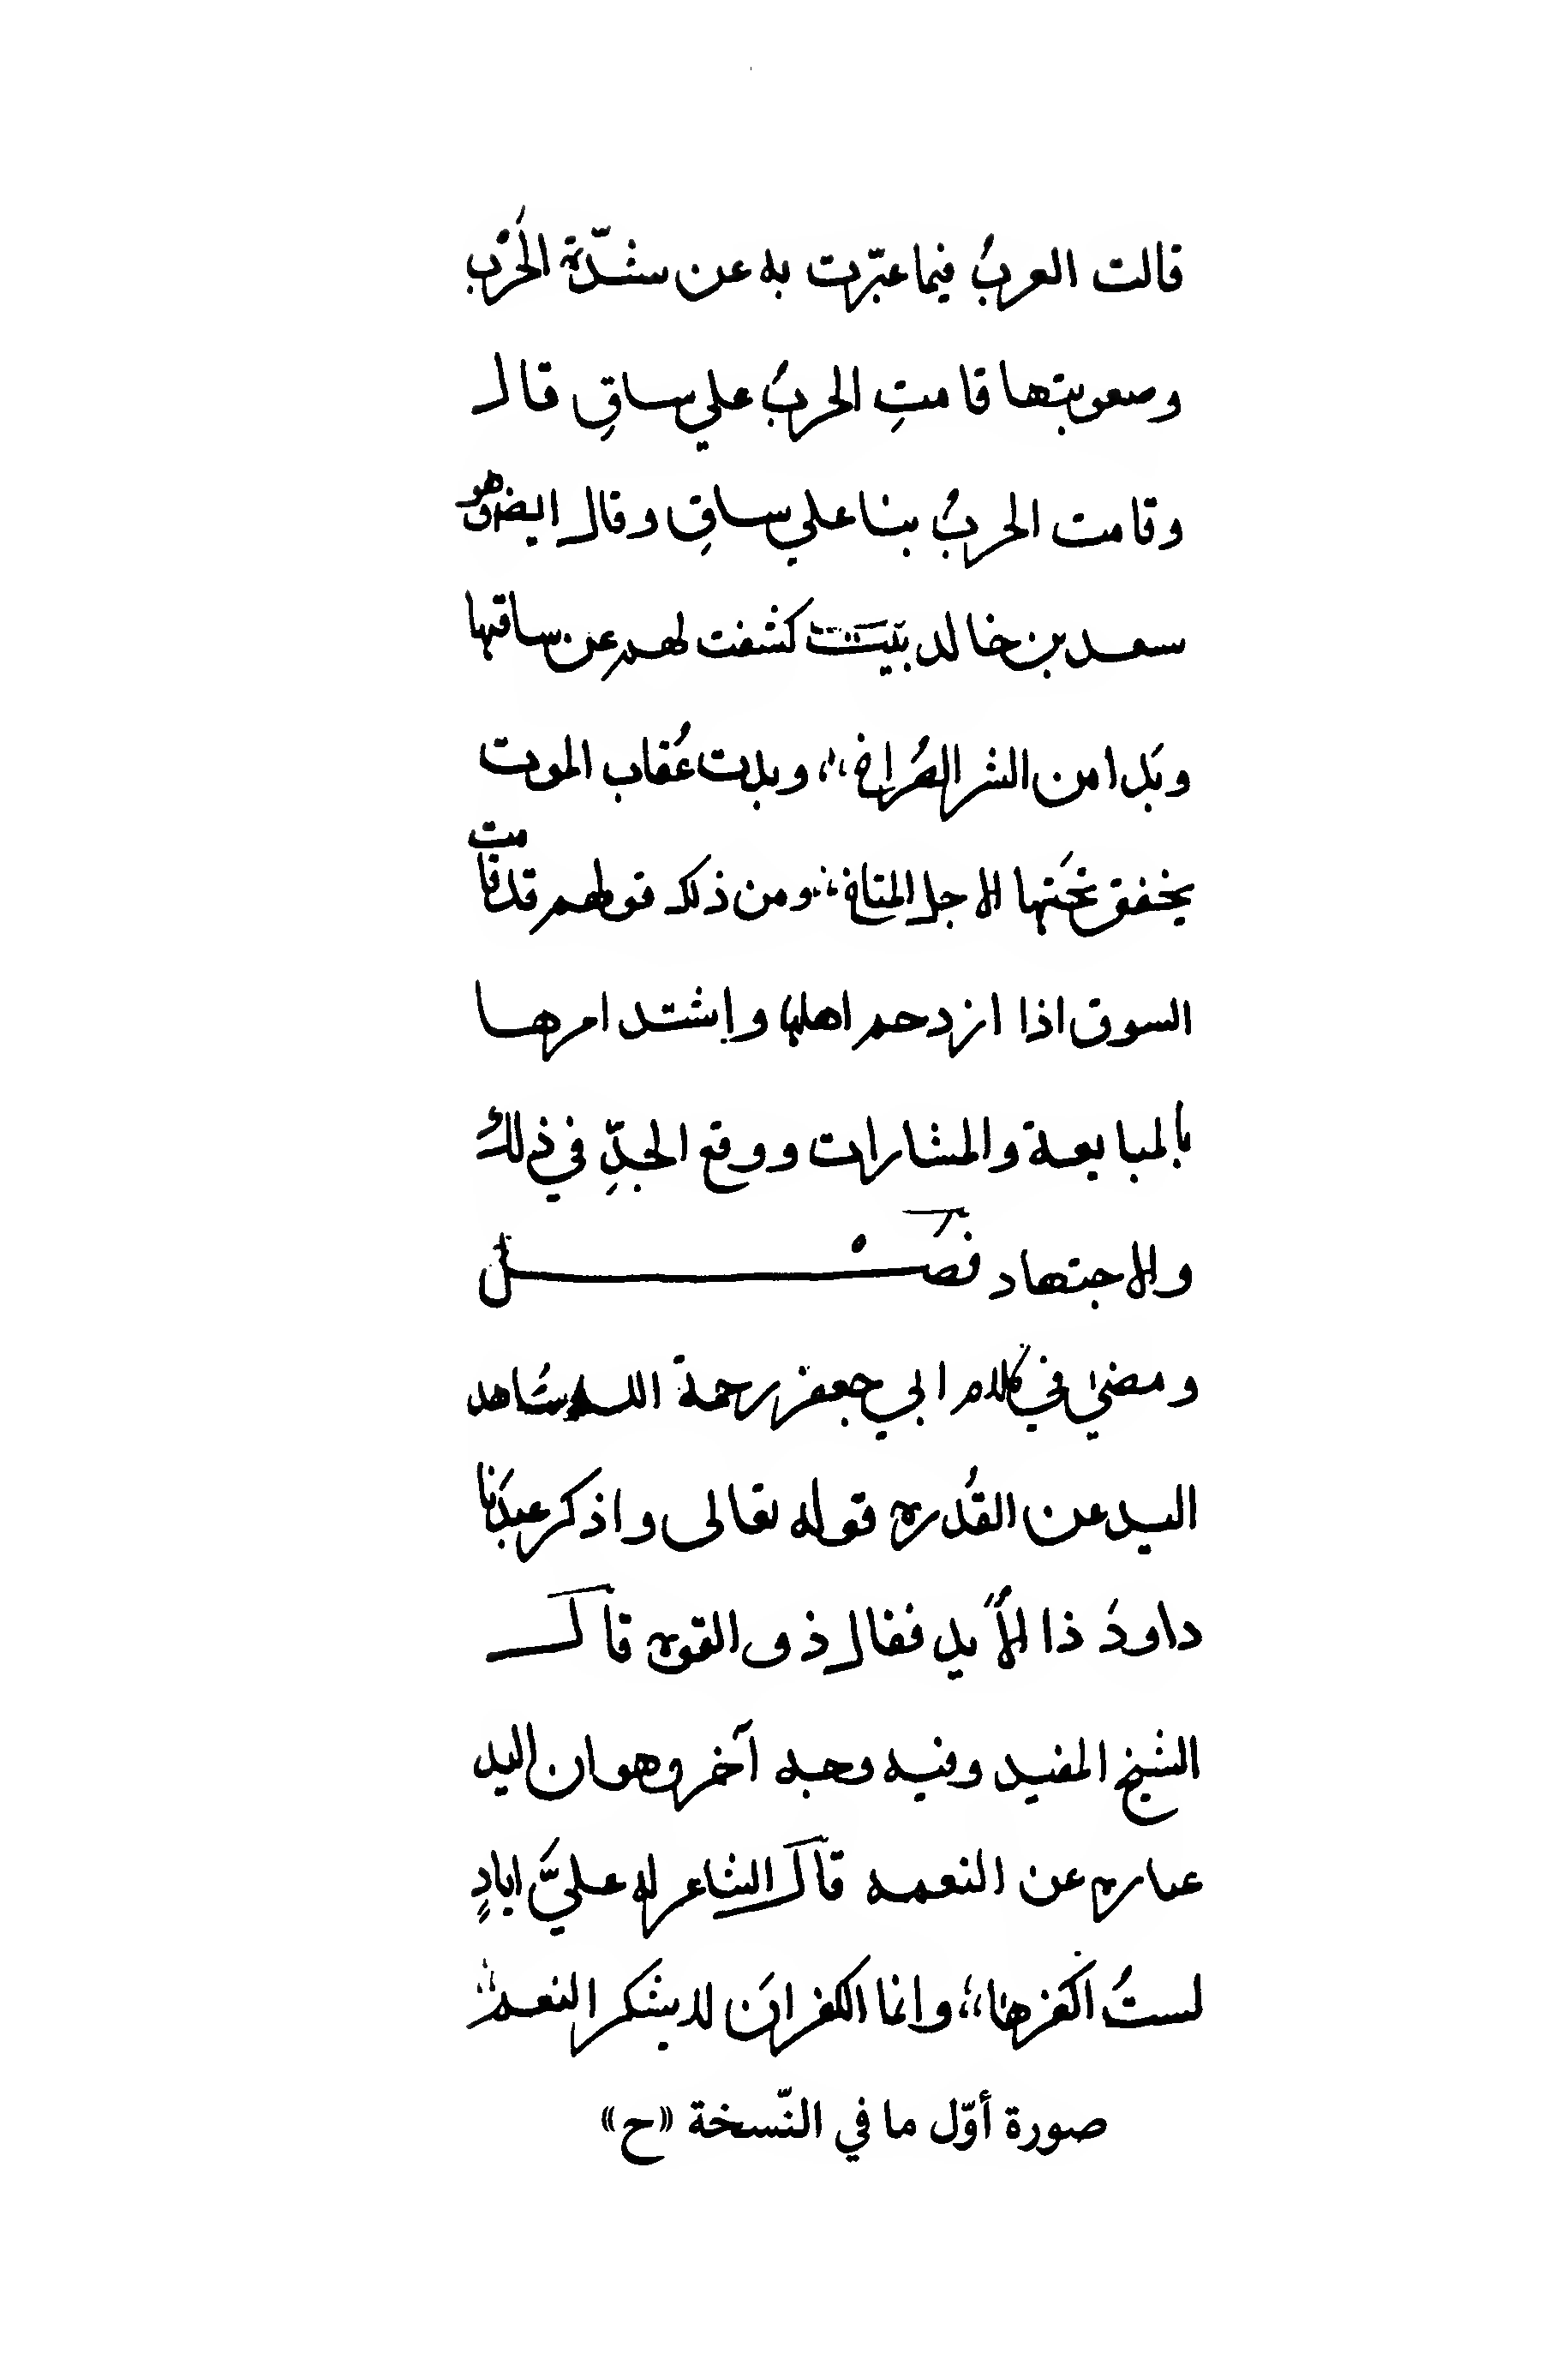 قالت العربُ فيما عبّرت به عن شدّة الحَرْب
وصعوبتها قامتِ الحربُ علي ساقٍ قال
وقامت الحربُ بنا علي ساقٍ وقال ايضا وهو
سعد بن خالد بَيت كشفت لهم عن ساقها
وبَدا من الشر الصُراخ وبدت عُقاب الموت
يخفق تحَتها الاجل المتاخ ومن ذلك قولهم قد قامت
السوق اذا ازدحم اهلها واشتد امرها
بالمبايعة والمشارات ووقع الجدِّ في ذلك
والاجتهاد فَصْــــــــل
ومضيٰ في كلام ابي جعفر رحمة الله شاهد
اليد عن القُدرة قوله تعالى واذكر عبدَنا
داودَ ذا الأَيد فقال ذو القوة قال
الشيخ المفيد وفيه وجه آخر وهو ان اليد
عبارة عن النعمه قال الشاعر له عليَّ ايادٍ
لستُ اكَفرها وانما الكفرانَ لا يشكر النعم
صورة أوّل ما في النّسخة «ح»